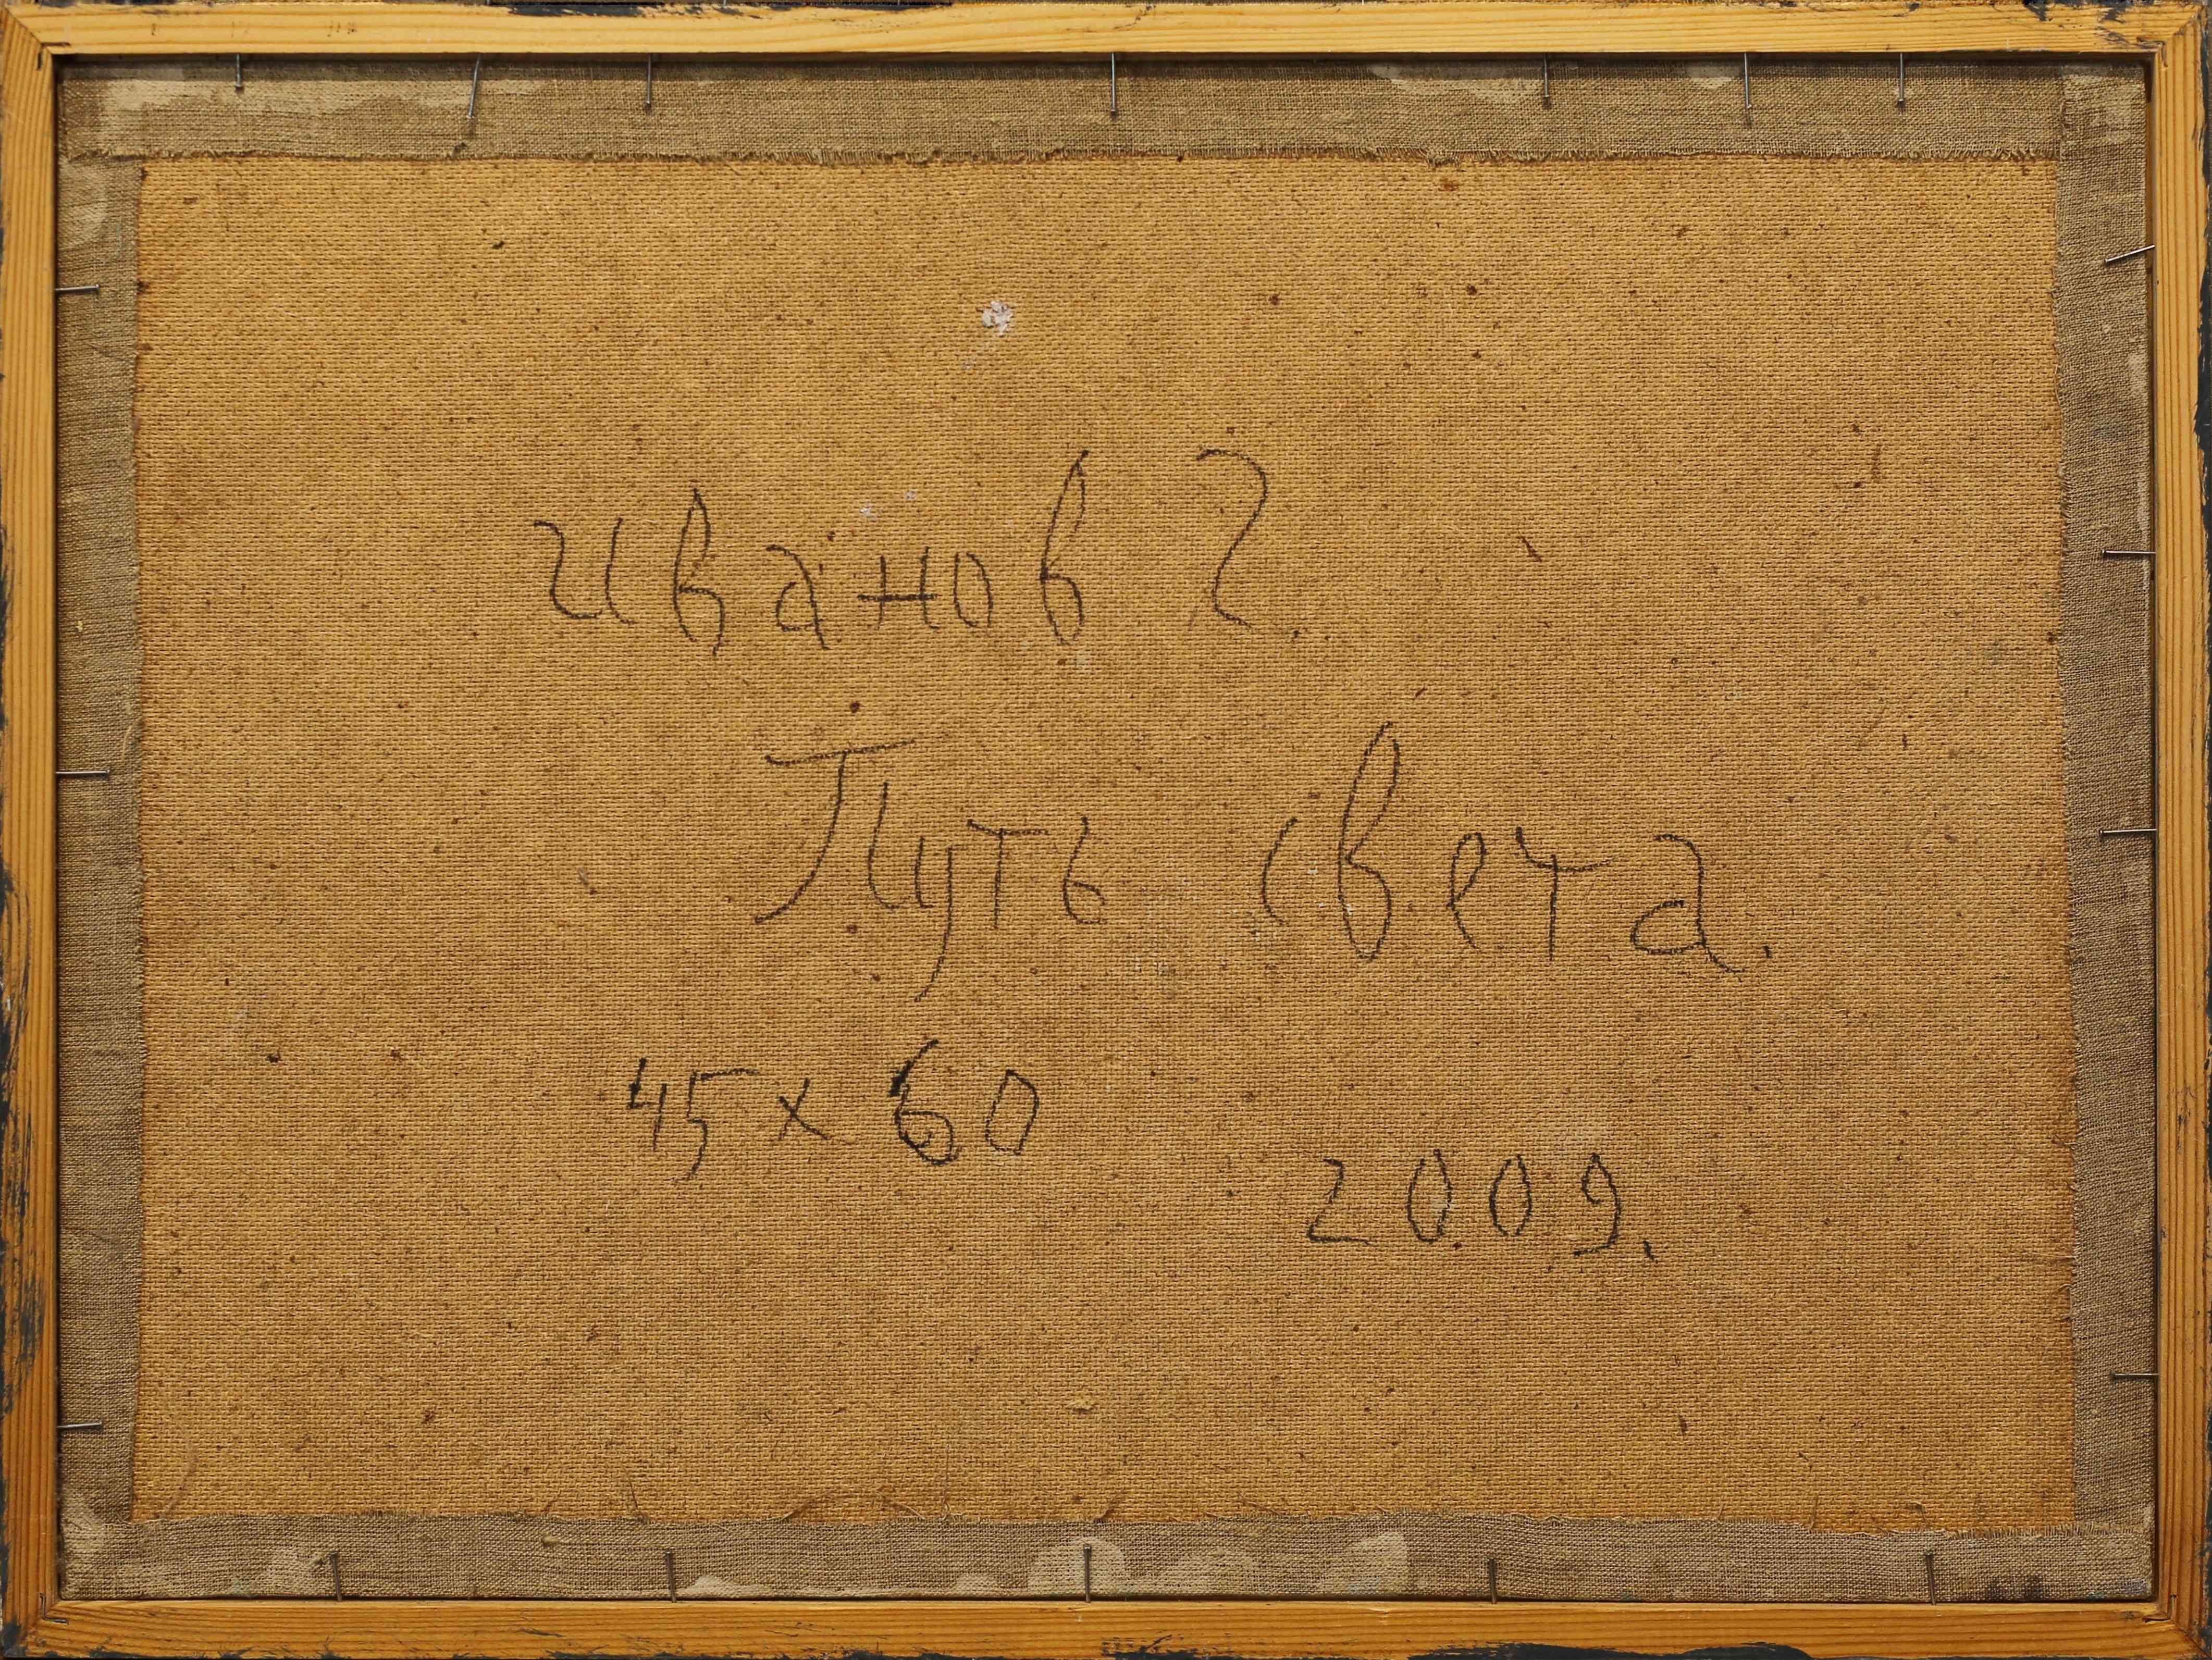 Иванов Г.
Путь света.
45 x 60
2009.